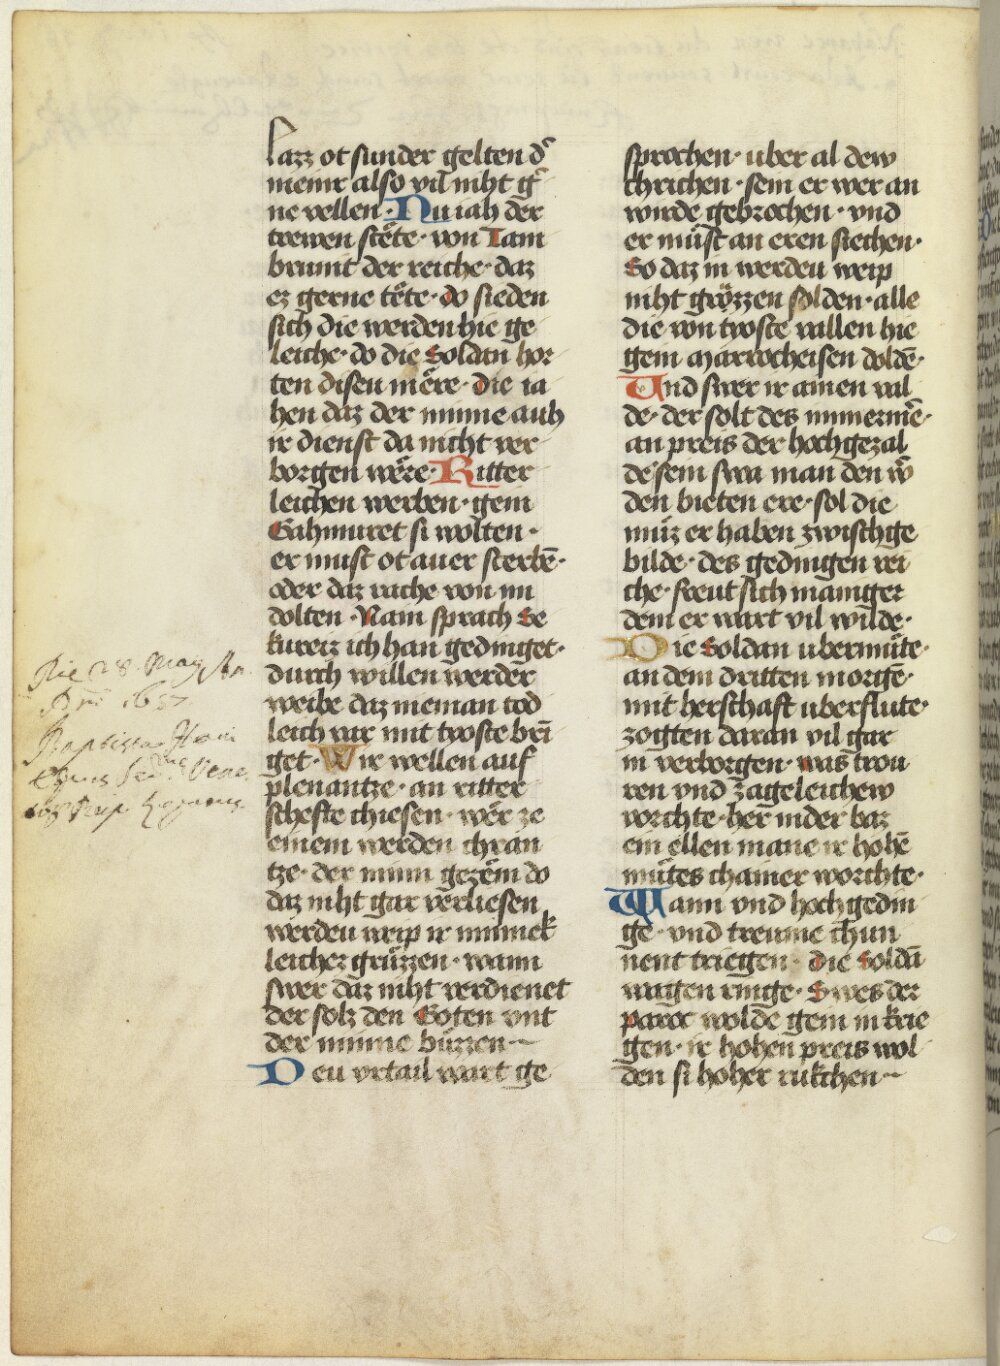 lazz ot sunder gelten d̾
meinr also vil niht g̾
ne wellen · Nu iah der
trewen stete · von Tam
brunit der reiche · daz
ez gerne tete · do sieden
sich die werden hie ge
leiche · do die Soldan hor
ten disen mere · die ia
hen daz der minne auh
ir dienst da nicht ver
borgen were · Ritter
leichen werben · gein
Gahmuret si wolten ·
er must ot auer sterbē ·
oder daz rache von im
dolten · Nain sprach Se
kureiz ich han gedinget ·
durch willen werder
weibe daz nieman tod
leich var mit troste brī
get · Wir wellen auf
plenantze · an ritter
schefte chiesen · wer ze
einem werden chran
tze · der minn gezem do
daz niht gar verliesen
werden weip ir minnek
leicher grüzzen · wann
swer daz niht verdienet
der solz den Goten vnt
der minne büzzen
Deu vrtail wart ge
sprochen · uber al dew
chrichen · sein er wer an
wirde gebrochen · vnd
er müst an eren siechen ·
So daz in werden weip
niht grözzen solden · alle
die von troste willen hie
gein Marrocheisen doldē ·
Und swer ir amen wil
de · der solt des nimermē ·
an preis der hochgezal
de sein swa man den w̄
den bieten ere · sol die
müz er haben zwischge
bilde · des gedingen rei
che · freut sich maniger
dem er wart vil wilde ·
Die Soldan ubermüte ·
an dem dritten morgē ·
mit herschaft uberflute ·
zogten daran vil gar
in verborgen · was trou
ren vnd zageleichew
vorchte · her in der baz
ein ellen mane ir hohē
mütes chainer worchte ·
Wann vnd hochgedin
ge · vnd treume chun
nent triegen · die Soldā
wagen ringe · Swes der
paroc wolde gein in krie
gen · ir hohen preis wol
den si hoher rukchen
Die 28 May
1657
Baptista